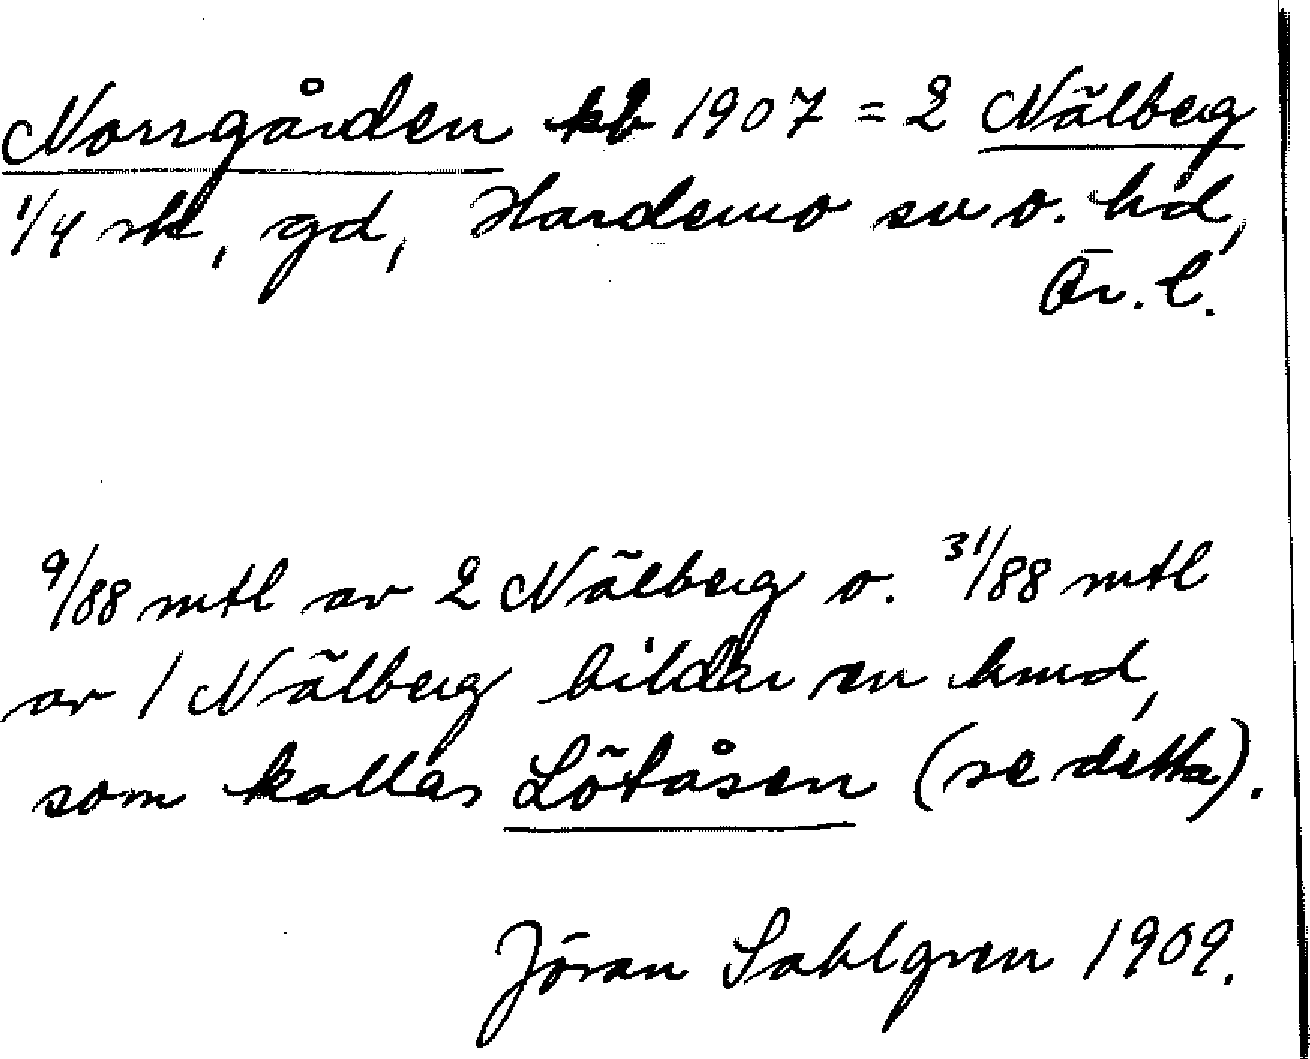 Norrgården kb 1907 = 2 Nälberg
1/4 sk, gd, Hardemo sn o. hd,
Ör. l.
9/88 mtl av 2 Nälberg o. 31/88 mtl
av 1 Nälberg bildar en hmd,
som kallas Lötåsen (se detta).
Jöran Sahlgren 1909.